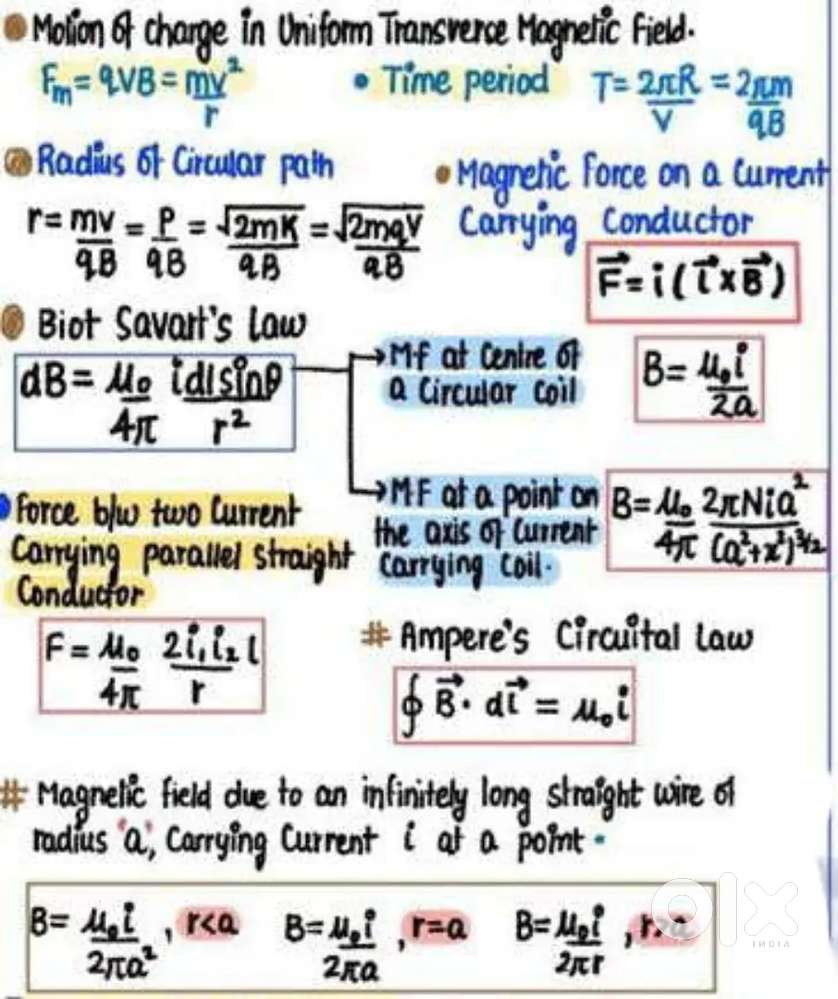 Motion of charge in Uniform Transverce Magnetic Field.
Fm = qVB = mv²/r
• Time period T = 2πR/V = 2πm/qB
Radius of Circular path
r = mv/qB = P/qB = √2mK/qB = √2mqV/qB
• Magnetic Force on a Current
Carrying Conductor
F⃗ = i(l⃗ × B⃗)
Biot Savart's Law
dB = μ₀/4π idlsinθ/r²
→ Mf at Centre of
a Circular Coil
B = μ₀i/2a
→ MF at a point on
the axis of Current
Carrying Coil.
B = μ₀/4π 2πNia²/(a²+x²)^3/2
Force b/w two Current
Carrying parallel straight
Conductor
F = μ₀/4π 2i₁i₂l/r
# Ampere's Circuital Law
∮ B⃗ · dl⃗ = μ₀i
# Magnetic field due to an infinitely long straight wire of
radius 'a', Carrying Current i at a point.
B = μ₀i/2πa², r<a
B = μ₀i/2πa, r=a
B = μ₀i/2πr, r>a
olx
INDIA